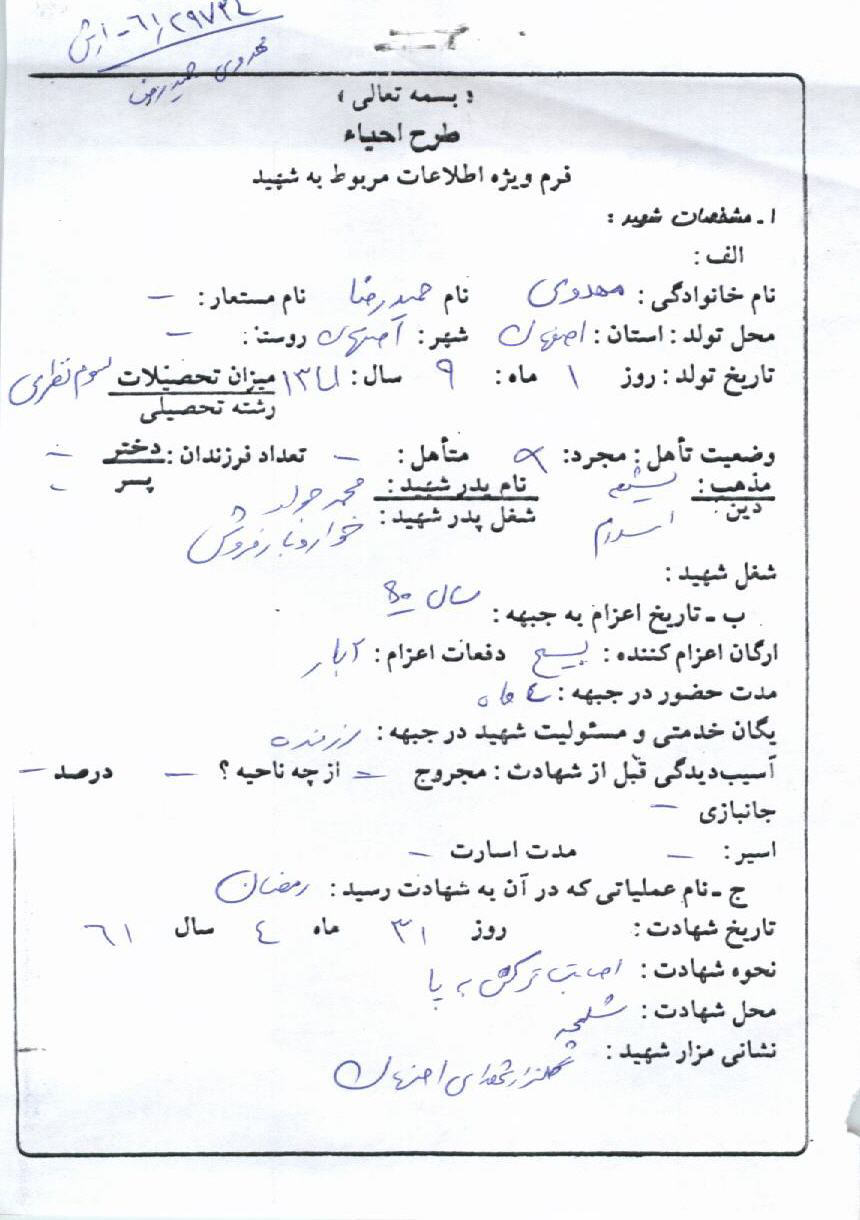 ۶۱/۲۹۷۳۴-
مهدوی حمیدرضا
« بسمه تعالی »
طرح احیاء
فرم ویژه اطلاعات مربوط به شهید
۱ـ مشخصات شهید :
الف :
نام خانوادگی : مهدوی نام حمیدرضا نام مستعار : –
محل تولد : استان : اصفهان شهر : اصفهان روستا : –
تاریخ تولد : روز ۱ ماه : ۹ سال : میزان تحصیلات سوم نظری
رشته تحصیلی
وضعیت تأهل : مجرد : متأهل : – تعداد فرزندان : دختر –
پسر –
مذهب : شیعه نام پدر شهید : محمد جواد
دین : اسلام شغل پدر شهید : خواروبار فروش
شغل شهید :
ب ـ تاریخ اعزام به جبهه : سال ۶۰
ارگان اعزام کننده : بسیج دفعات اعزام : ۲ بار
مدت حضور در جبهه : ٤ ماه
یگان خدمتی و مسئولیت شهید در جبهه : رزمنده
آسیب‌دیدگی قبل از شهادت : مجروح – از چه ناحیه ؟ – درصد –
جانبازی –
اسیر : – مدت اسارت –
ج ـ نام عملیاتی که در آن به شهادت رسید : رمضان
تاریخ شهادت : روز ۳۱ ماه ٤ سال ۶۱
نحوه شهادت : اصابت ترکش به پا
محل شهادت : شلمچه
نشانی مزار شهید : گلزار شهدای اصفهان